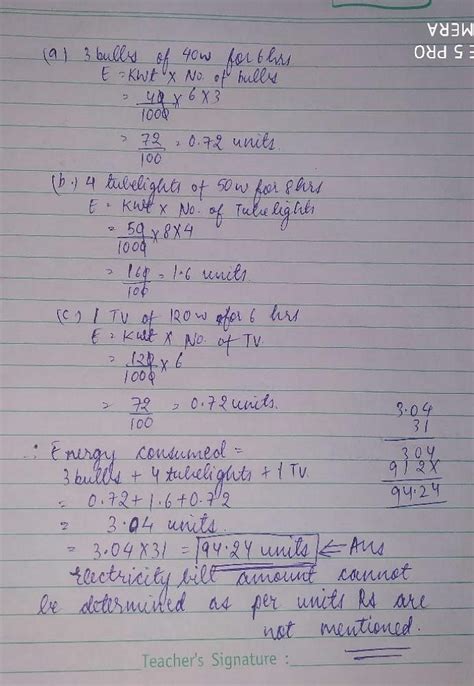 E 5 PRO
MERA
(a) 3 bulbs of 40w for 6 hrs
E = Kwt × No. of bulbs
= 40/1000 × 6 × 3
= 72/100 = 0.72 units.
(b.) 4 tubelights of 50w for 8 hrs
E = Kwt × No. of Tubelights
= 50/1000 × 8 × 4
= 160/100 = 1.6 units
(c) 1 TV of 120w for 6 hrs
E = Kwt × No. of TV
= 120/1000 × 6
= 72/100 = 0.72 units.
∴ Energy consumed =
3 bulbs + 4 tubelights + 1 TV.
= 0.72 + 1.6 + 0.72
= 3.04 units.
= 3.04 × 31 = 94.24 units ← Ans
3.04
31
304
912×
94.24
Electricity bill amount cannot
be determined as per units Rs are
not mentioned.
Teacher's Signature :